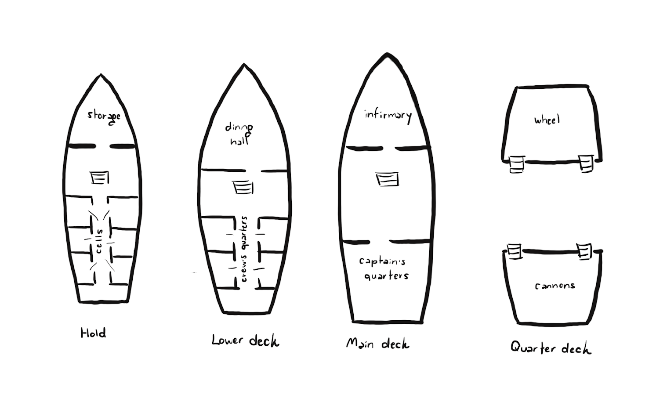 storage
cells
Hold
dinng
hall
crew's quarters
Lower deck
infirmary
captain's
quarters
Main deck
wheel
cannons
Quarter deck